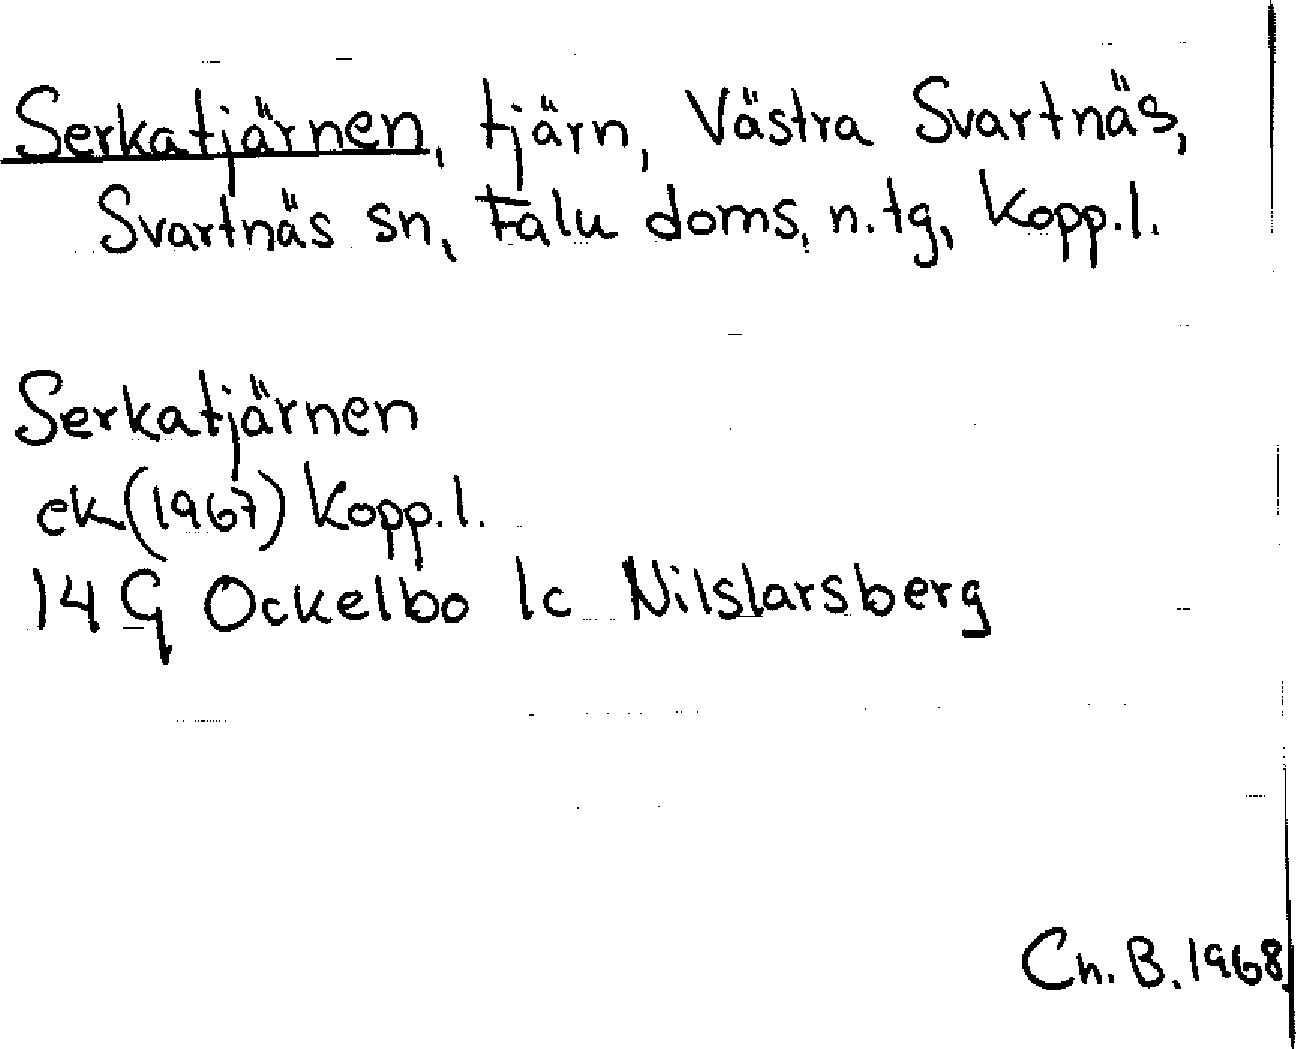 Serkatjärnen, tjärn, Västra Svartnäs,
Svartnäs sn, Falu doms, n. tg, Kopp. l.
Serkatjärnen
ek (1967) Kopp. l.
14 G Ockelbo 1c Nilslarsberg
Ch. B. 1968